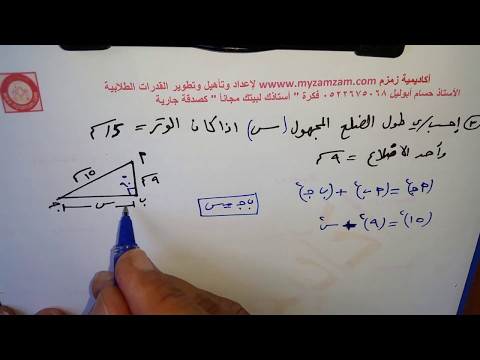 أكاديمية زمزم www.myzamzam.com لإعداد وتأهيل وتطوير القدرات الطلابية
الأستاذ حسام أبوليل ٠٥٢٢٦٧٥٠٦٨ فكرة " أستاذك لبيتك مجاناً " كصدقة جارية
إحسب/ي طول الضلع المجهول (س) اذا كان الوتر = ١٥سم
وأحد الأضلاع = ٩سم
(أجـ)² = (أب)² + (ب جـ)²
(١٥)² = (٩)² + س²
ب جـ = س
أ
١٥سم
٩سم
ب
س
جـ